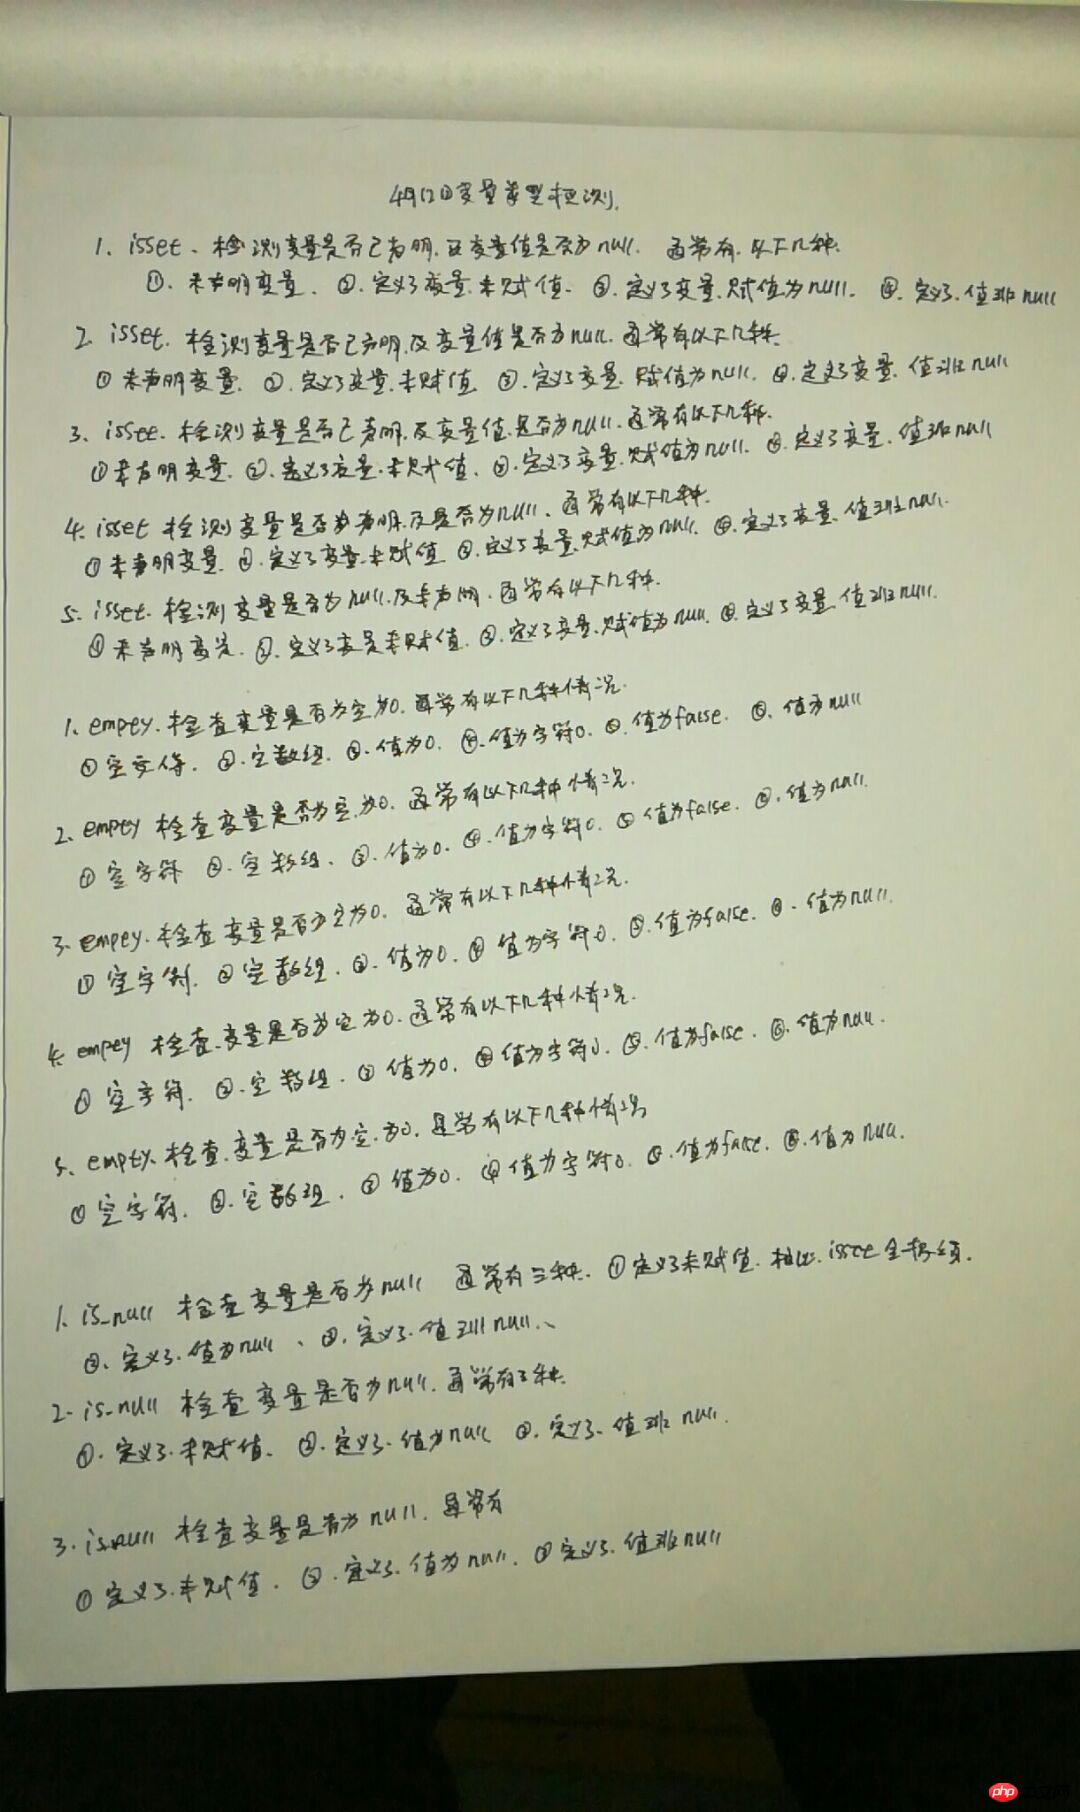 4月12日变量类型检测.
1. isset、检测变量是否已声明.及变量值是否为null. 通常有.以下几种.
①.未声明变量. ②.定义了变量.未赋值. ③.定义了变量.赋值为null. ④.定义了.值非null
2. isset. 检测变量是否已声明.及变量值是否为null. 通常有以下几种.
① 未声明变量. ②.定义了变量.未赋值. ③.定义了变量.赋值为null. ④.定义了变量.值非null
3. isset. 检测变量是否已声明.及变量值.是否为null.通常有以下几种.
①未声明变量. ②.定义了变量.未赋值. ③.定义了变量.赋值为null. ④.定义了变量.值非null
4. isset 检测变量是否为声明.及是否为null. 通常有以下几种.
①未声明变量. ②.定义了变量.未赋值 ③.定义了变量.赋值为null. ④.定义了变量.值非null.
5. isset. 检测变量是否为null.及未声明. 通常有以下几种.
①未声明变量. ②.定义了变量未赋值. ③.定义了变量.赋值为null. ④.定义了变量.值非null.
1. empey.检查变量是否为空为0.通常有以下几种情况.
① ②.空数组. ③.值为0. ④.值为字符0. ⑤.值为false. ⑥.值为null
2. empty 检查变量是否为空.为0.通常有以下几种情况.
①空字符 ②.空数组. ③.值为0. ④.值为字符0. ⑤值为false. ⑥.值为null.
3. empey.检查变量是否为空为0. 通常有以下几种情况.
①空字符. ②空数组. ③.值为0. ④值为字符0. ⑤.值为false. ⑥.值为null.
4. empey 检查.变量是否为空为0.通常有以下几种情况.
①空字符. ②.空数组. ③值为0. ④值为字符0. ⑤.值为false. ⑥.值为null.
5. empty.检查.变量是否为空.为0.通常有以下几种情况
①空字符. ②.空数组. ③值为0. ④值为字符0. ⑤.值为false. ⑥.值为null.
1. is_null 检查变量是否为null 通常有三种. ①定义了未赋值. 相比.isset
②、定义了.值为null 、③.定义了.值非null.、
2. is_null 检查变量是否为null.通常有3种.
①.定义了.未赋值. ②.定义了.值为null ③.定义了.值非null.
3. is_null 检查变量是否为null. 通常有
①定义了.未赋值. ②.定义了.值为null. ③定义了.值非null
php中文网